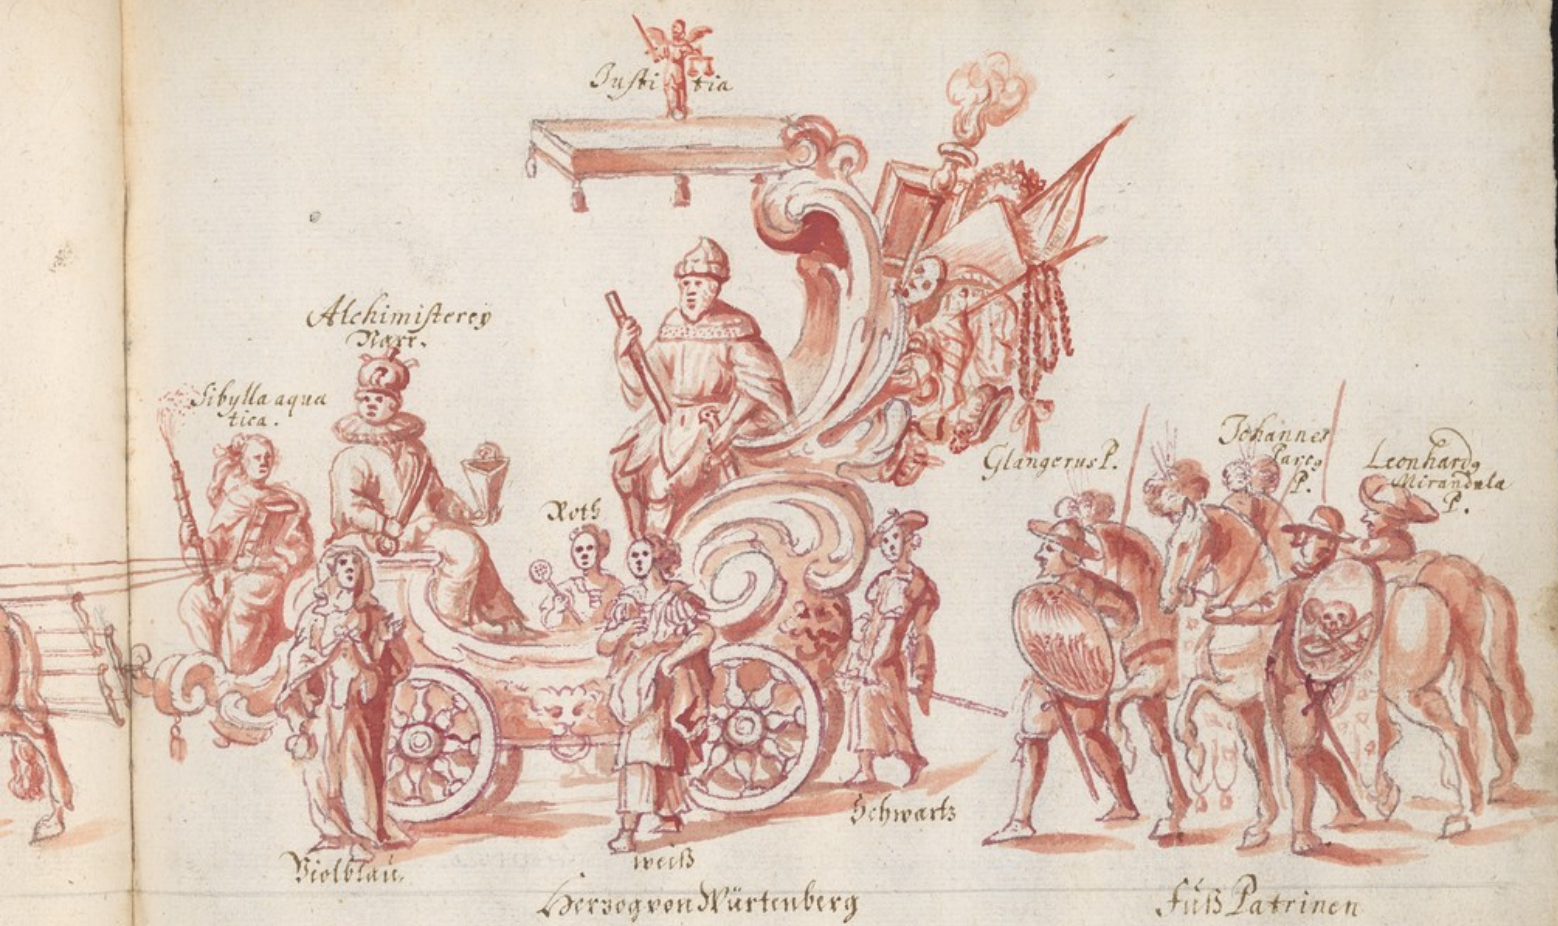 Justitia
Alchimisterey
Narr.
Sibylla aqua
tica.
Roth
Glangerus P.
Johannes
Parcȝ
P.
Leonhardȝ
Mirandula
P.
Schwartz
Violblau.
weiß
Herzog von Würtenberg
Fuß Patrinen